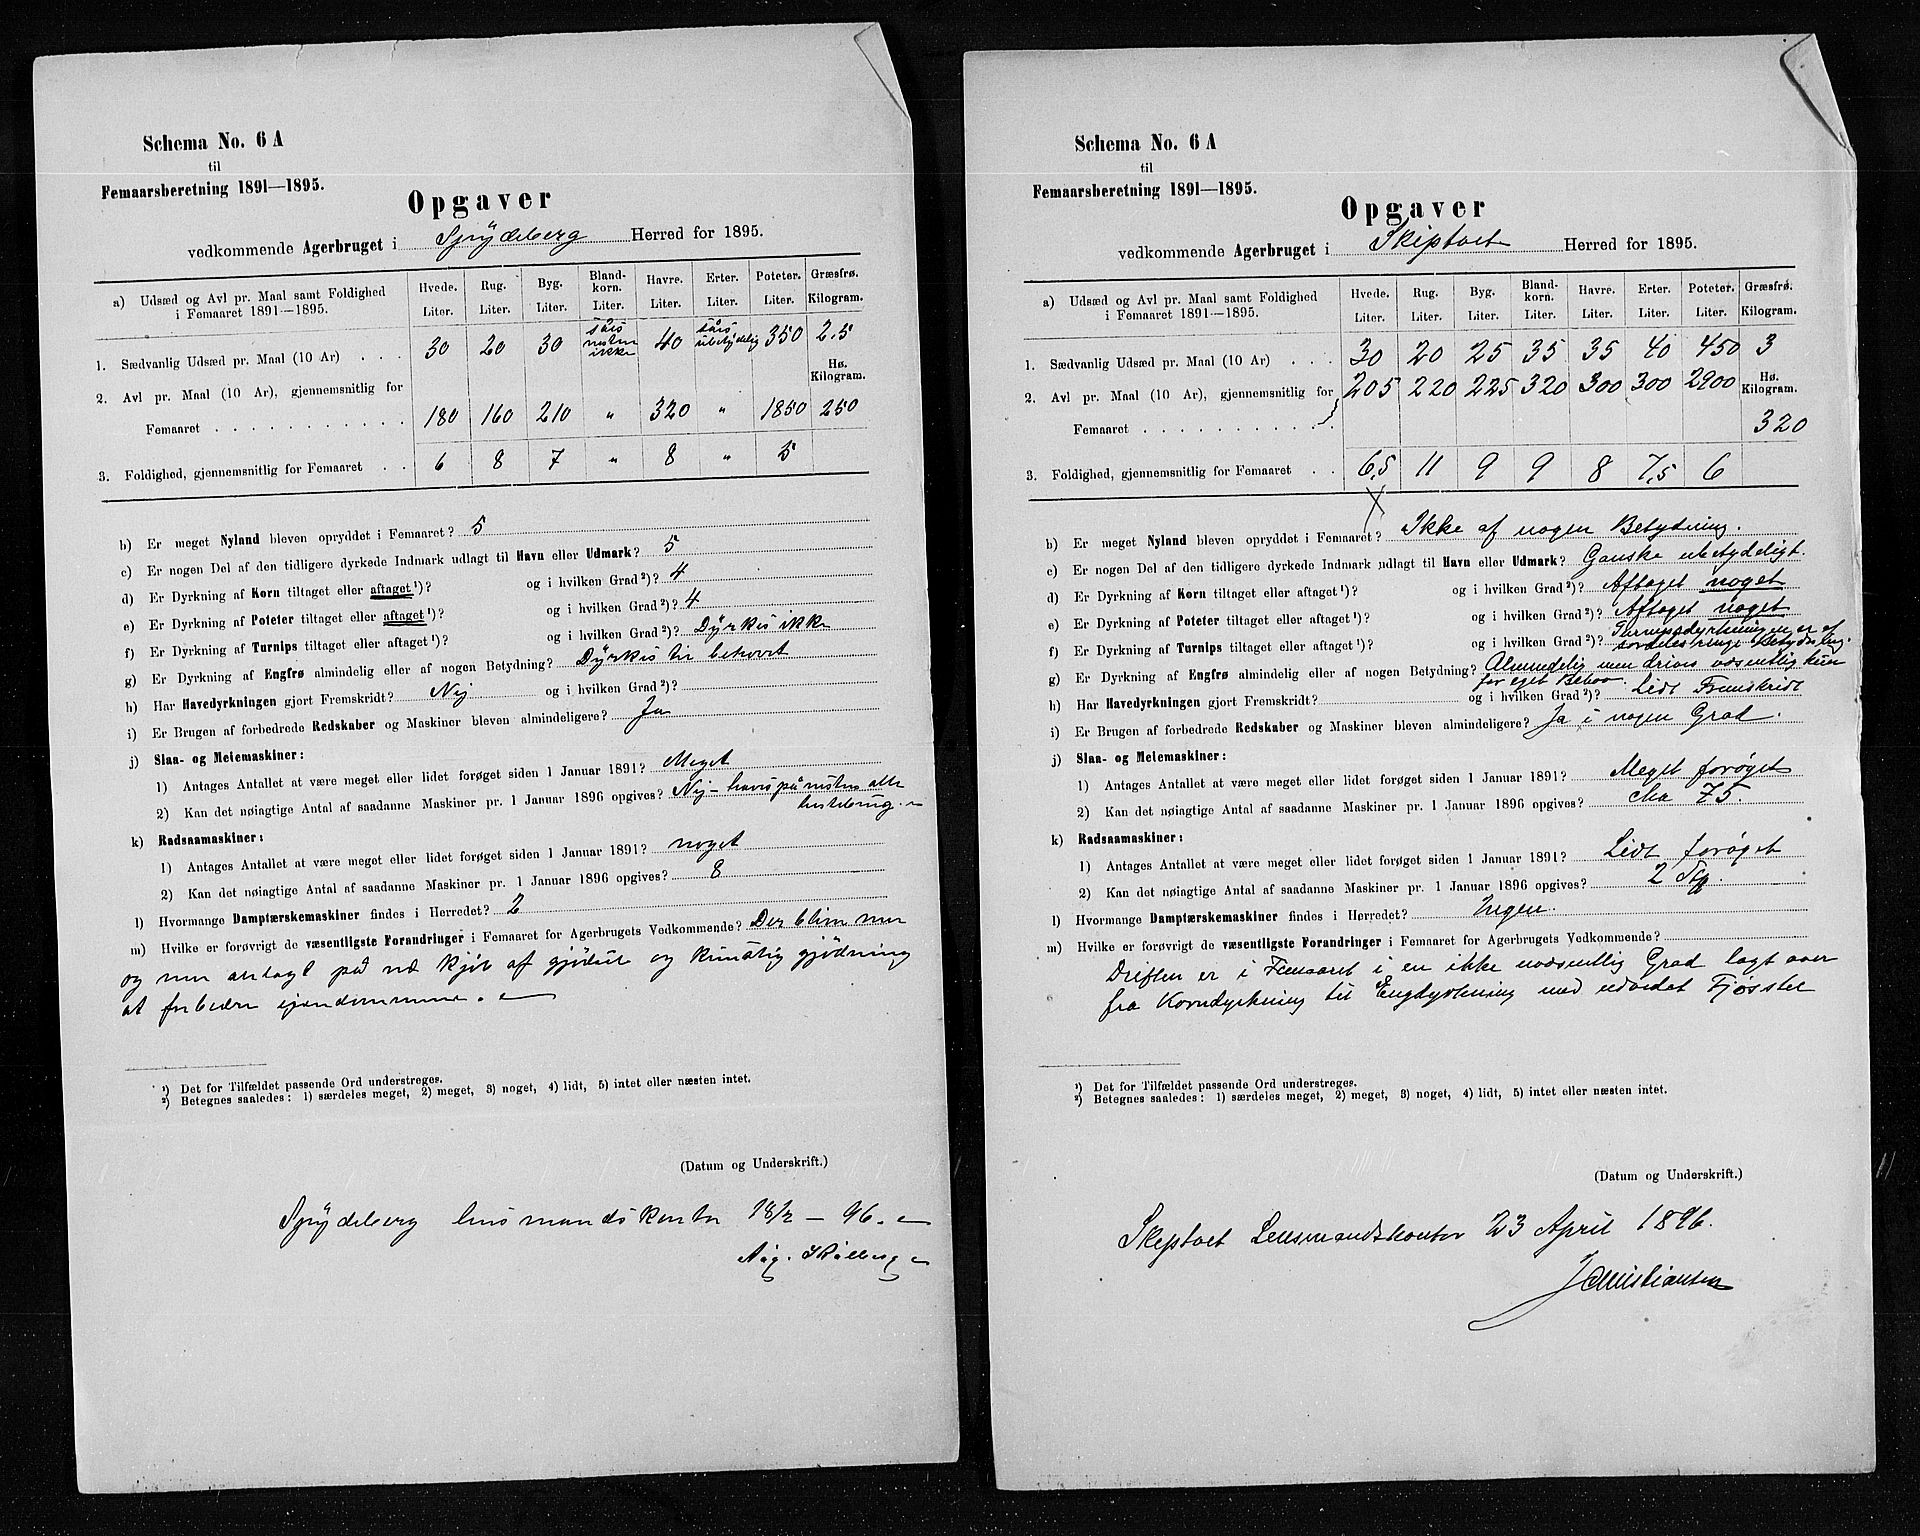 Schema No. 6 A
til
Femaarsberetning 1891—1895.
Opgaver
vedkommende Agerbruget i Spydeberg Herred for 1895.
a) Udsæd og Avl pr. Maal samt Foldighed
i Femaaret 1891—1895.
Hvede. Liter. Rug. Liter. Byg. Liter. Bland-korn. Liter. Havre. Liter. Erter. Liter. Poteter. Liter. Græsfrø. Kilogram.
1. Sædvanlig Udsæd pr. Maal (10 Ar) . . . 30 20 30 såes næsten ikke 40 såes ubetydelig 350 2.5
Hø. Kilogram.
2. Avl pr. Maal (10 Ar), gjennemsnitlig for
Femaaret . . . . . . . . . . . 180 160 210 " 320 " 1850 250
3. Foldighed, gjennemsnitlig for Femaaret . . 6 8 7 " 8 " 5
b) Er meget Nyland bleven opryddet i Femaaret? 5
c) Er nogen Del af den tidligere dyrkede Indmark udlagt til Havn eller Udmark? 5
d) Er Dyrkning af Korn tiltaget eller aftaget ¹)? og i hvilken Grad ²)? 4
e) Er Dyrkning af Poteter tiltaget eller aftaget ¹)? og i hvilken Grad ²)? 4
f) Er Dyrkning af Turnips tiltaget eller aftaget ¹)? og i hvilken Grad ²)? Dyrkes ikke
g) Er Dyrkning af Engfrø almindelig eller af nogen Betydning? Dyrkes til behovet
h) Har Havedyrkningen gjort Fremskridt? Nej og i hvilken Grad ²)?
i) Er Brugen af forbedrede Redskaber og Maskiner bleven almindeligere? Ja
j) Slaa- og Meiemaskiner:
1) Antages Antallet at være meget eller lidet forøget siden 1 Januar 1891? Meget
2) Kan det nøiagtige Antal af saadanne Maskiner pr. 1 Januar 1896 opgives? Nej — haves på næsten alle
k) Radsaamaskiner:
1) Antages Antallet at være meget eller lidet forøget siden 1 Januar 1891? noget
2) Kan det nøiagtige Antal af saadanne Maskiner pr. 1 Januar 1896 opgives? 8
l) Hvormange Damptærskemaskiner findes i Herredet? 2
m) Hvilke er forøvrigt de væsentligste Forandringer i Femaaret for Agerbrugets Vedkommende? Der blive mer
og mer anlagt på ved kjøb af gjødsel og kunstig gjødning
at forbedre ejendommene.
¹) Det for Tilfældet passende Ord understreges.
²) Betegnes saaledes: 1) særdeles meget, 2) meget, 3) noget, 4) lidt, 5) intet eller næsten intet.
(Datum og Underskrift.)
Spydeberg lensmandskontor 18/2 — 96.
Aug.
Schema No. 6 A
til
Femaarsberetning 1891—1895.
Opgaver
vedkommende Agerbruget i Skiptvet Herred for 1895.
a) Udsæd og Avl pr. Maal samt Foldighed
i Femaaret 1891—1895.
Hvede. Liter. Rug. Liter. Byg. Liter. Bland-korn. Liter. Havre. Liter. Erter. Liter. Poteter. Liter. Græsfrø. Kilogram.
1. Sædvanlig Udsæd pr. Maal (10 Ar) . . . 30 20 25 35 35 40 450 3
2. Avl pr. Maal (10 Ar), gjennemsnitlig for 205 220 225 320 300 300 2900 Hø. Kilogram.
Femaaret . . . . . . . . . . . 320
3. Foldighed, gjennemsnitlig for Femaaret . . 6,5 11 9 9 8 7,5 6
b) Er meget Nyland bleven opryddet i Femaaret? Ikke af nogen Betydning.
c) Er nogen Del af den tidligere dyrkede Indmark udlagt til Havn eller Udmark? Ganske ubetydeligt.
d) Er Dyrkning af Korn tiltaget eller aftaget ¹)? og i hvilken Grad ²)? Aftaget noget
e) Er Dyrkning af Poteter tiltaget eller aftaget ¹)? og i hvilken Grad ²)? Aftaget noget
f) Er Dyrkning af Turnips tiltaget eller aftaget ¹)? og i hvilken Grad ²)? Turnipsdyrkningen er af
særdeles ringe Betydning.
g) Er Dyrkning af Engfrø almindelig eller af nogen Betydning? Almindelig men drives væsentlig kun
for eget Behov.
h) Har Havedyrkningen gjort Fremskridt? og i hvilken Grad ²)? Lidt Fremskridt
i) Er Brugen af forbedrede Redskaber og Maskiner bleven almindeligere? Ja i nogen Grad.
j) Slaa- og Meiemaskiner:
1) Antages Antallet at være meget eller lidet forøget siden 1 Januar 1891? Meget forøget
2) Kan det nøiagtige Antal af saadanne Maskiner pr. 1 Januar 1896 opgives? cka 75.
k) Radsaamaskiner:
1) Antages Antallet at være meget eller lidet forøget siden 1 Januar 1891? Lidt forøget
2) Kan det nøiagtige Antal af saadanne Maskiner pr. 1 Januar 1896 opgives? 2 Stk.
l) Hvormange Damptærskemaskiner findes i Herredet? Ingen.
m) Hvilke er forøvrigt de væsentligste Forandringer i Femaaret for Agerbrugets Vedkommende?
Driften er i Femaaret i en ikke uvæsentlig Grad lagt over
fra Korndyrkning til Engdyrkning med udvidet Fjøsstel
¹) Det for Tilfældet passende Ord understreges.
²) Betegnes saaledes: 1) særdeles meget, 2) meget, 3) noget, 4) lidt, 5) intet eller næsten intet.
(Datum og Underskrift.)
Skiptvet Lensmandskontor 23 April 1896.
J Christiansen